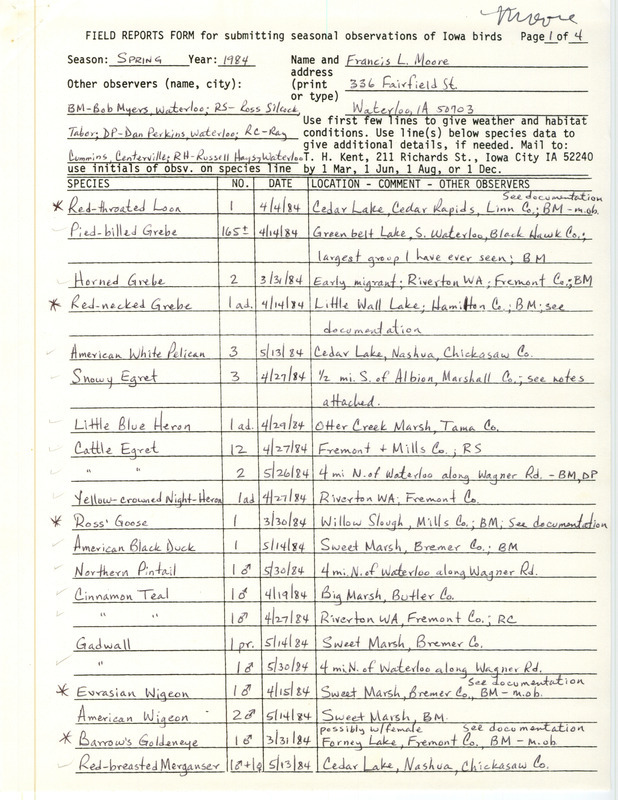 Moore
FIELD REPORTS FORM for submitting seasonal observations of Iowa birds Page 1 of 4
Season: SPRING Year: 1984 Name and Francis L. Moore
address
Other observers (name, city): (print 336 Fairfield St.
or type)
BM-Bob Myers, Waterloo; RS- Ross Silcock, Waterloo, IA 50703
Use first few lines to give weather and habitat
Tabor; DP-Dan Perkins, Waterloo; RC-Ray conditions. Use line(s) below species data to
give additional details, if needed. Mail to:
Cummins, Centerville; RH-Russell Hays, Waterloo T. H. Kent, 211 Richards St., Iowa City IA 52240
use initials of obsv. on species line by 1 Mar, 1 Jun, 1 Aug, or 1 Dec.
SPECIES NO. DATE LOCATION - COMMENT - OTHER OBSERVERS
See documentation
* Red-throated Loon 1 4/4/84 Cedar Lake, Cedar Rapids, Linn Co.; BM - m.ob.
Pied-billed Grebe 165± 4/14/84 Greenbelt Lake, S. Waterloo, Black Hawk Co.;
largest group I have ever seen; BM
Horned Grebe 2 3/31/84 Early migrant; Riverton WA; Fremont Co.; BM
* Red-necked Grebe 1 ad. 4/14/84 Little Wall Lake; Hamilton Co.; BM; see
documentation
American White Pelican 3 5/13/84 Cedar Lake, Nashua, Chickasaw Co.
Snowy Egret 3 4/27/84 1/2 mi. S. of Albion, Marshall Co.; see notes
attached.
Little Blue Heron 1 ad. 4/29/84 Otter Creek Marsh, Tama Co.
Cattle Egret 12 4/27/84 Fremont + Mills Co.; RS
" " 2 5/26/84 4 mi N. of Waterloo along Wagner Rd. - BM, DP
Yellow-crowned Night-Heron 1ad 4/27/84 Riverton WA; Fremont Co.
* Ross' Goose 1 3/30/84 Willow Slough, Mills Co.; BM; See documentation
American Black Duck 1 5/14/84 Sweet Marsh, Bremer Co.; BM
Northern Pintail 1♂ 5/30/84 4 mi. N. of Waterloo along Wagner Rd.
Cinnamon Teal 1♂ 4/19/84 Big Marsh, Butler Co.
" " 1♂ 4/27/84 Riverton WA, Fremont Co.; RC
Gadwall 1 pr. 5/14/84 Sweet Marsh, Bremer Co.
" 1♂ 5/30/84 4 mi N. of Waterloo along Wagner Rd.
See documentation
* Eurasian Wigeon 1♂ 4/15/84 Sweet Marsh, Bremer Co., BM - m.ob.
American Wigeon 2♂ 5/14/84 Sweet Marsh, BM.
possibly w/female See documentation
* Barrow's Goldeneye 1♂ 3/31/84 Forney Lake, Fremont Co., BM - m.ob.
Red-breasted Merganser 1♂+1♀ 5/13/84 Cedar Lake, Nashua, Chickasaw Co.